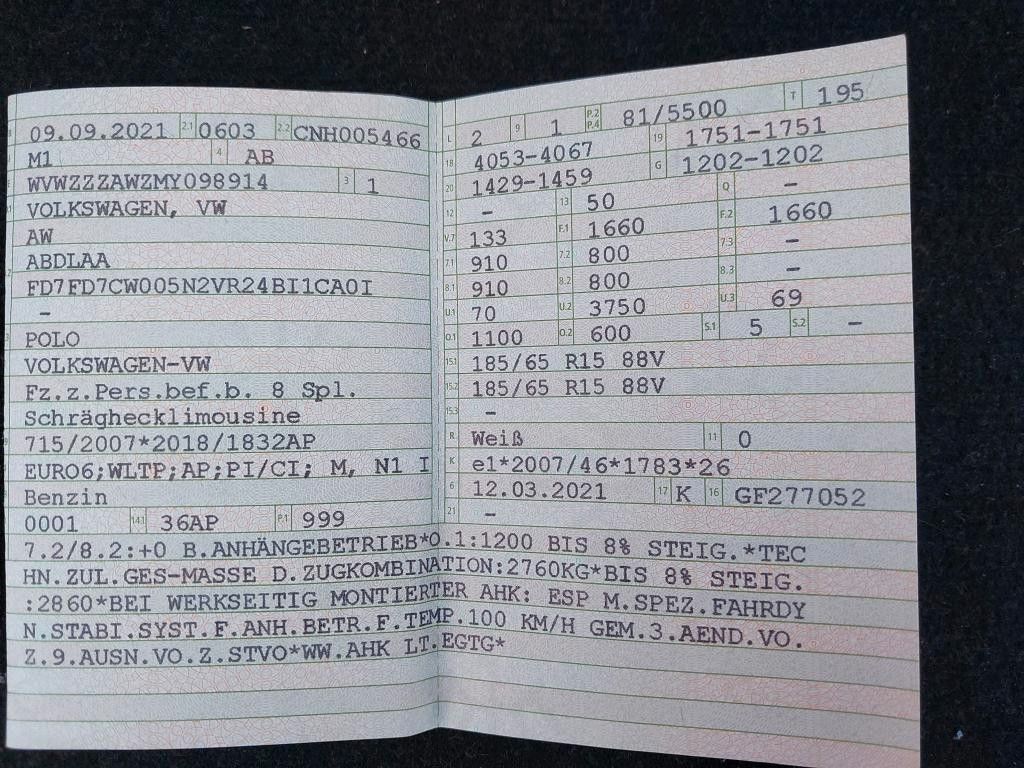 09.09.2021 2.1 0603 2.2 CNH005466
M1 4 AB
WVWZZZAWZMY098914 3 1
VOLKSWAGEN, VW
AW
ABDLAA
FD7FD7CW005N2VR24BI1CA0I
–
POLO
VOLKSWAGEN-VW
Fz.z.Pers.bef.b. 8 Spl.
Schräghecklimousine
715/2007*2018/1832AP
EURO6;WLTP;AP;PI/CI; M, N1 I
Benzin
0001 14.1 36AP P.1 999
L 2 9 1 P.2 P.4 81/5500 T 195
18 4053-4067 19 1751-1751
20 1429-1459 G 1202-1202
12 – 13 50 Q –
V.7 133 F.1 1660 F.2 1660
7.1 910 7.2 800 7.3 –
8.1 910 8.2 800 8.3 –
U.1 70 U.2 3750 U.3 69
O.1 1100 O.2 600 S.1 5 S.2 –
15.1 185/65 R15 88V
15.2 185/65 R15 88V
15.3 –
R Weiß 11 0
K e1*2007/46*1783*26
6 12.03.2021 17 K 16 GF277052
21 –
7.2/8.2:+0 B.ANHÄNGEBETRIEB*O.1:1200 BIS 8% STEIG.*TEC
HN.ZUL.GES-MASSE D.ZUGKOMBINATION:2760KG*BIS 8% STEIG.
:2860*BEI WERKSEITIG MONTIERTER AHK: ESP M.SPEZ.FAHRDY
N.STABI.SYST.F.ANH.BETR.F.TEMP.100 KM/H GEM.3.AEND.VO.
Z.9.AUSN.VO.Z.STVO*WW.AHK LT.EGTG*